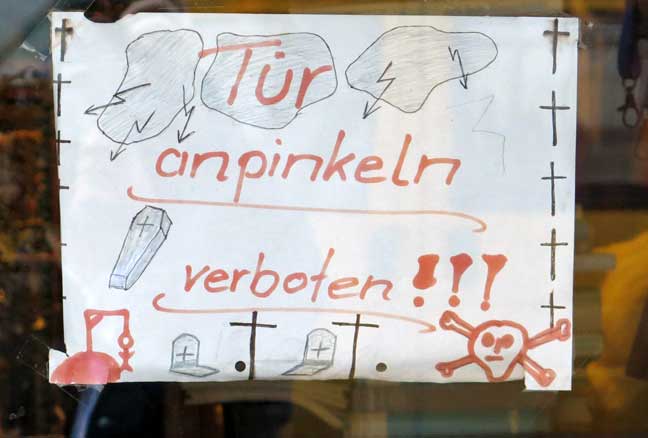 Tür
anpinkeln
verboten!!!